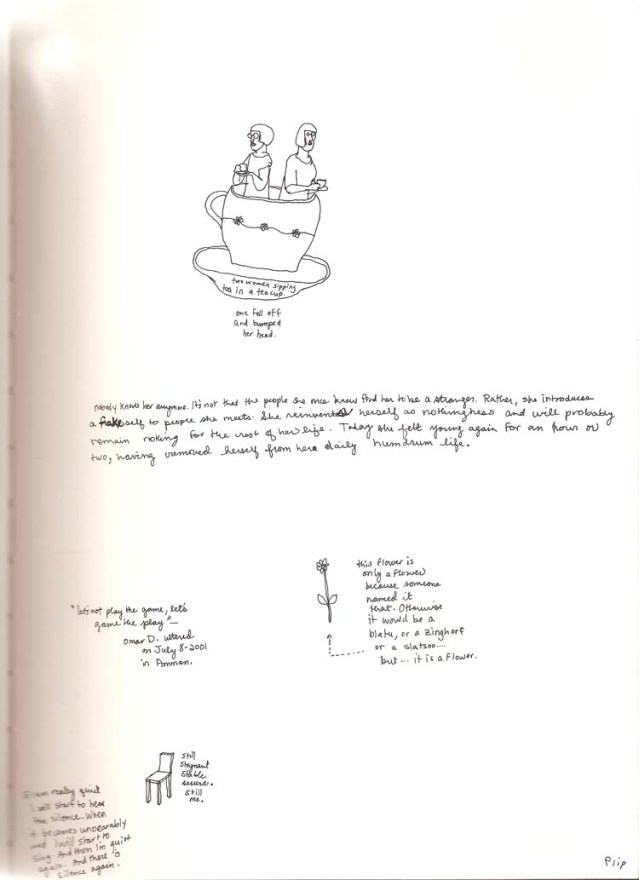 two women sipping
tea in a teacup.
one fell off
and bumped
her head.
nobody knows her anymore. It's not that the people she once knew find her to be a stranger. Rather, she introduces
a fake self to people she meets. She reinvented herself as nothingness and will probably
remain nothing for the rest of her life. Today she felt young again for an hour or
two, having removed herself from here daily humdrum life.
"let's not play the game, let's
game the play" —
Omar D. uttered
on July 8-2001
in Amman.
this flower is
only a flower
because someone
named it
that. Otherwise
it would be a
blatu, or a zinghorf
or a slatsoo....
but ... it is a flower.
still
stagnant
stable
secure.
still
me.
I am really quiet
I will start to hear
the silence. When
it becomes unbearably
I will start to
sing. And then I'm quiet
again. And there is
silence again.
Flip